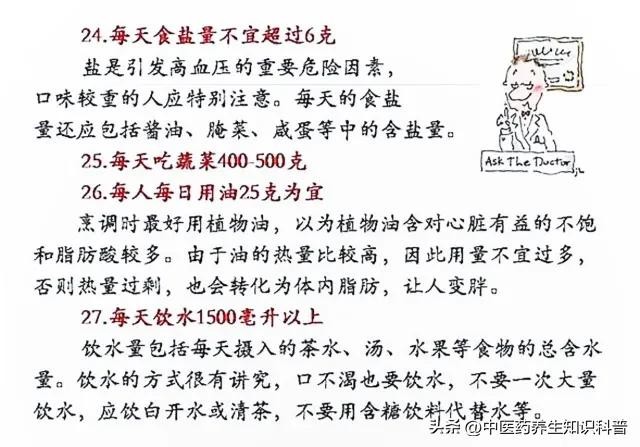 24.每天食盐量不宜超过6克
盐是引发高血压的重要危险因素，
口味较重的人应特别注意。每天的食盐
量还应包括酱油、腌菜、咸蛋等中的含盐量。
Ask The Doctor
25.每天吃蔬菜400-500克
26.每人每日用油25克为宜
烹调时最好用植物油，以为植物油含对心脏有益的不饱
和脂肪酸较多。由于油的热量比较高，因此用量不宜过多，
否则热量过剩，也会转化为体内脂肪，让人变胖。
27.每天饮水1500毫升以上
饮水量包括每天摄入的茶水、汤、水果等食物的总含水
量。饮水的方式很有讲究，口不渴也要饮水，不要一次大量
饮水，应饮白开水或清茶，不要用含糖饮料代替水等。
头条@中医药养生知识科普